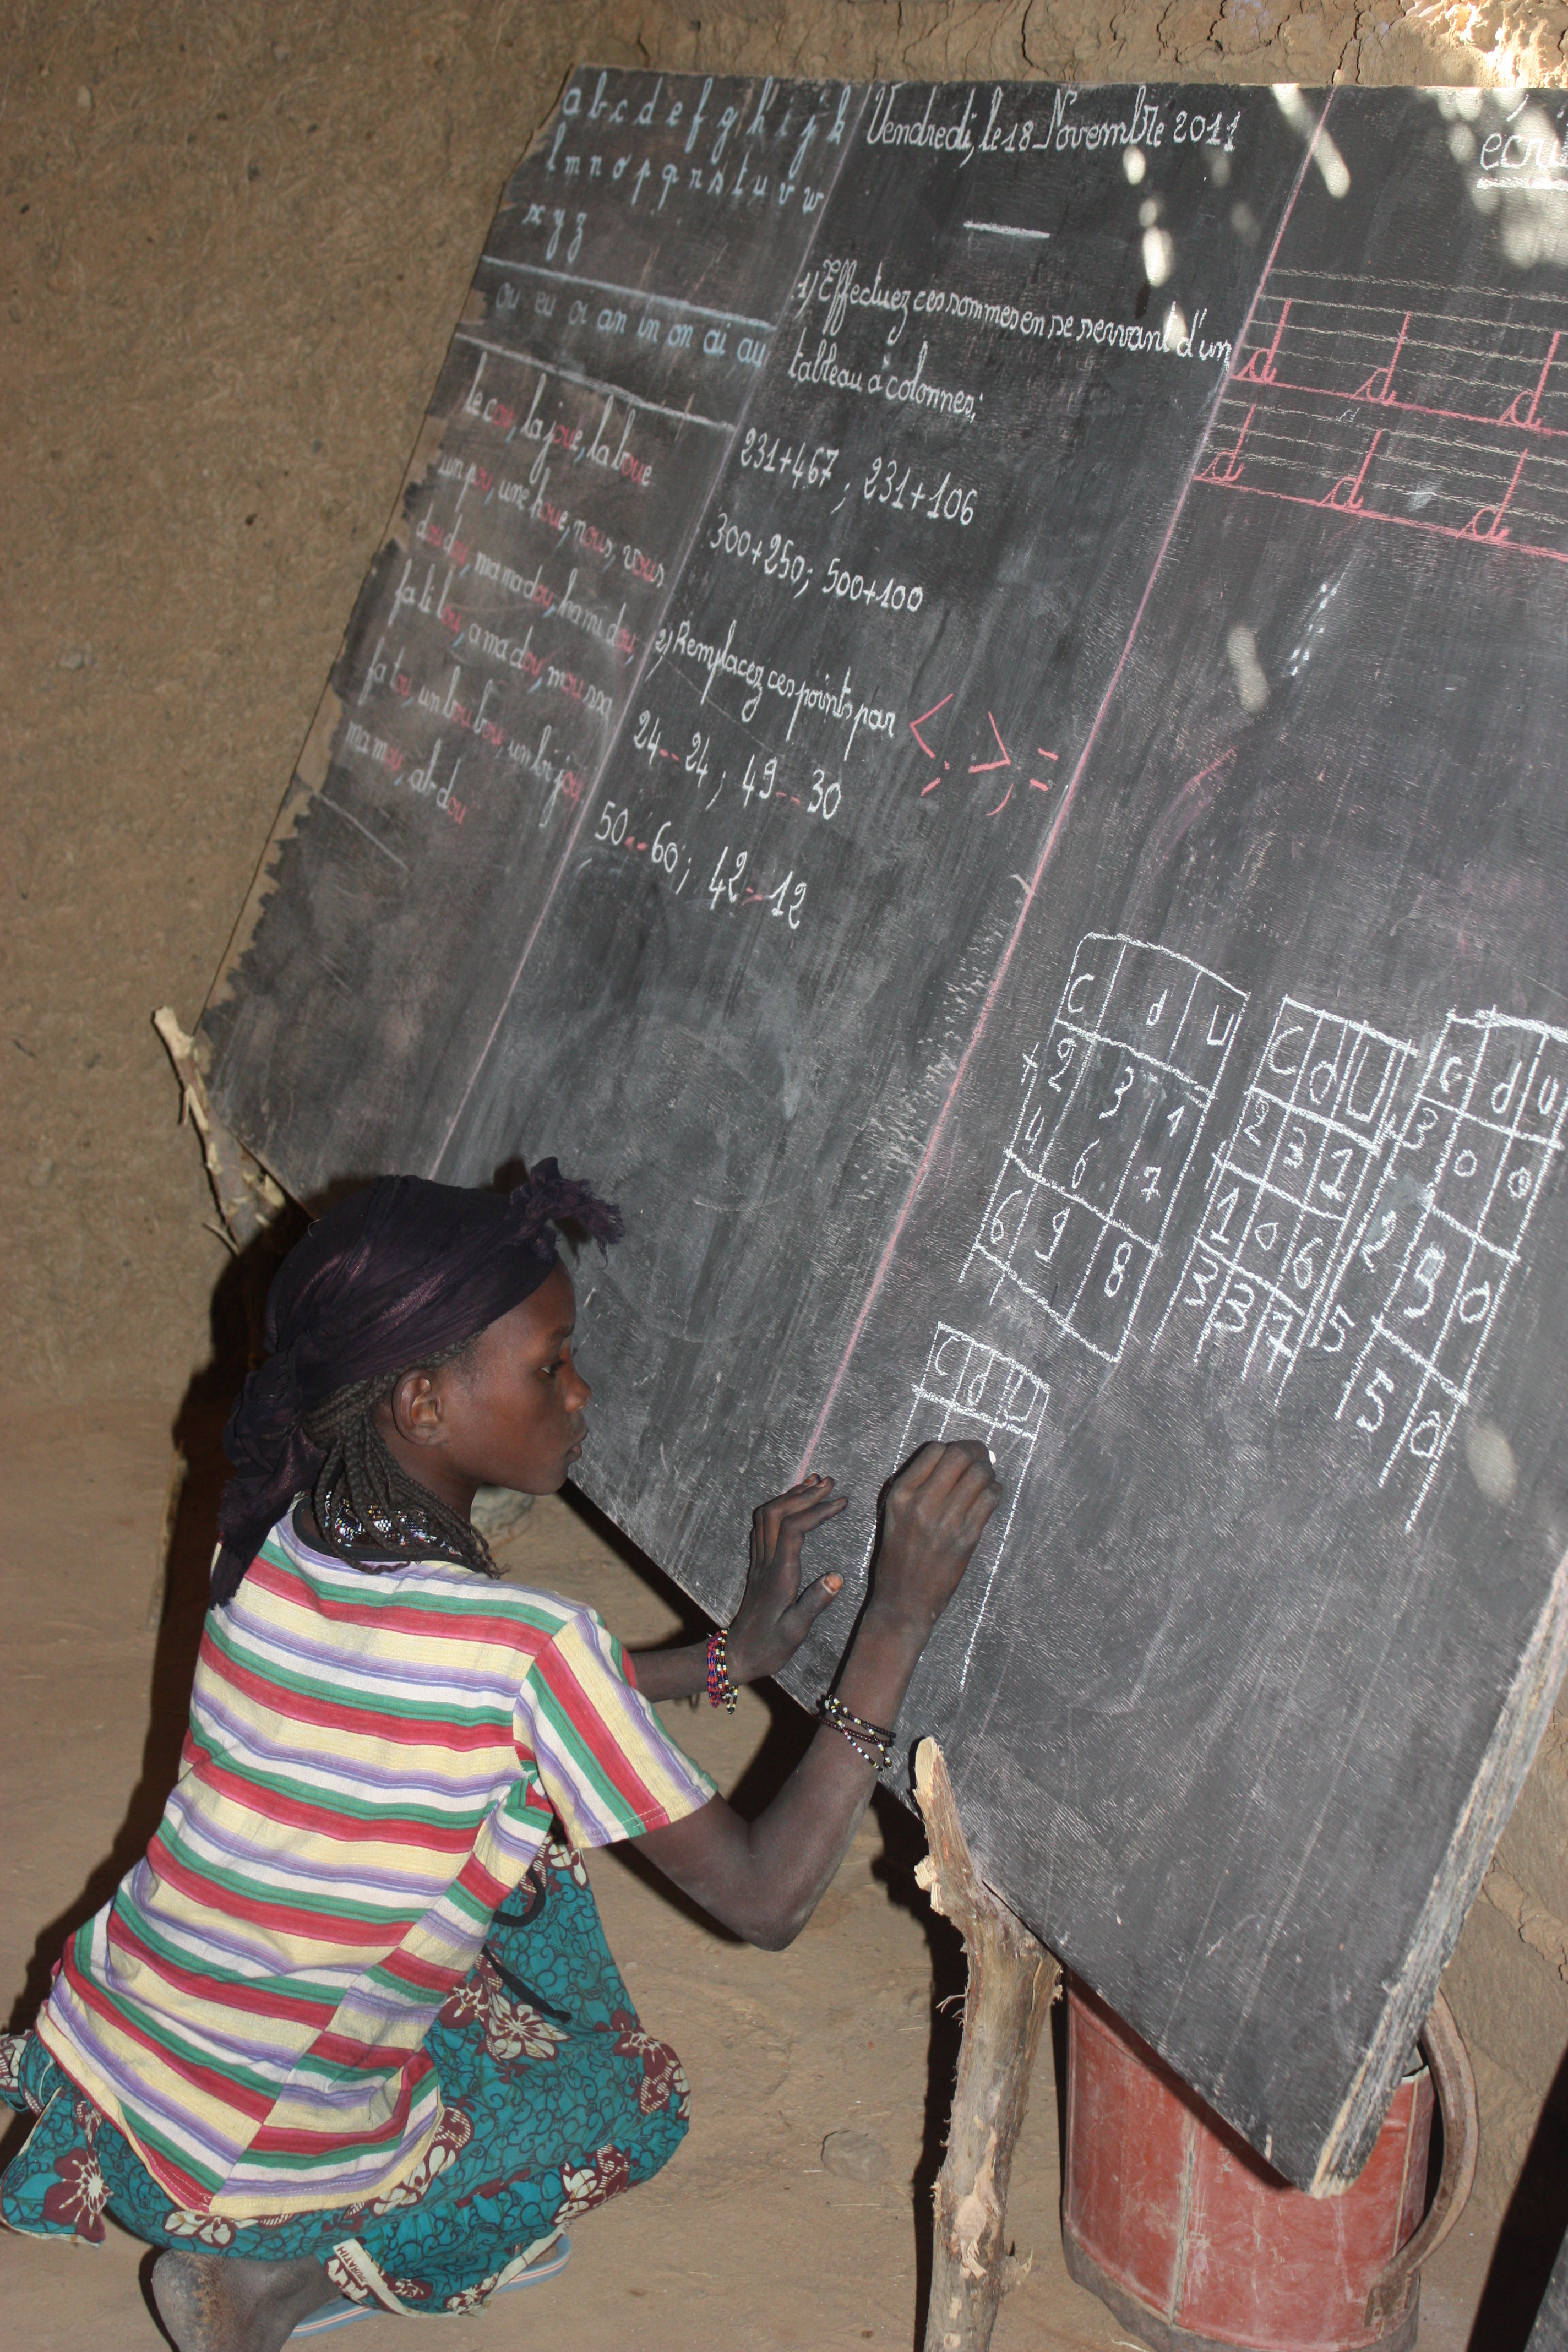 a b c d e f g h i j k
l m n o p q r s t u v w
x y z
ou eu oi an in on ai au
le cou, la joue, la boue
un pou, une houe, nous, vous
doudou, mamadou, hamidou,
falilou, amadou, moussa
fatou, un boubou, un bijou
mamou, abdou
Vendredi, le 18 Novembre 2011
1) Effectuez ces sommes en se servant d'un
tableau à colonnes:
231+467 ; 231+106
300+250; 500+100
2) Remplacez ces points par < ; > ; =
24..24 ; 49..30
50..60 ; 42..12
d d d
d d d
c d u
+ 2 3 1
4 6 7
6 9 8
C d U
2 3 1
1 0 6
3 3 7
C d u
3 0 0
2 5 0
5 5 0
C d U